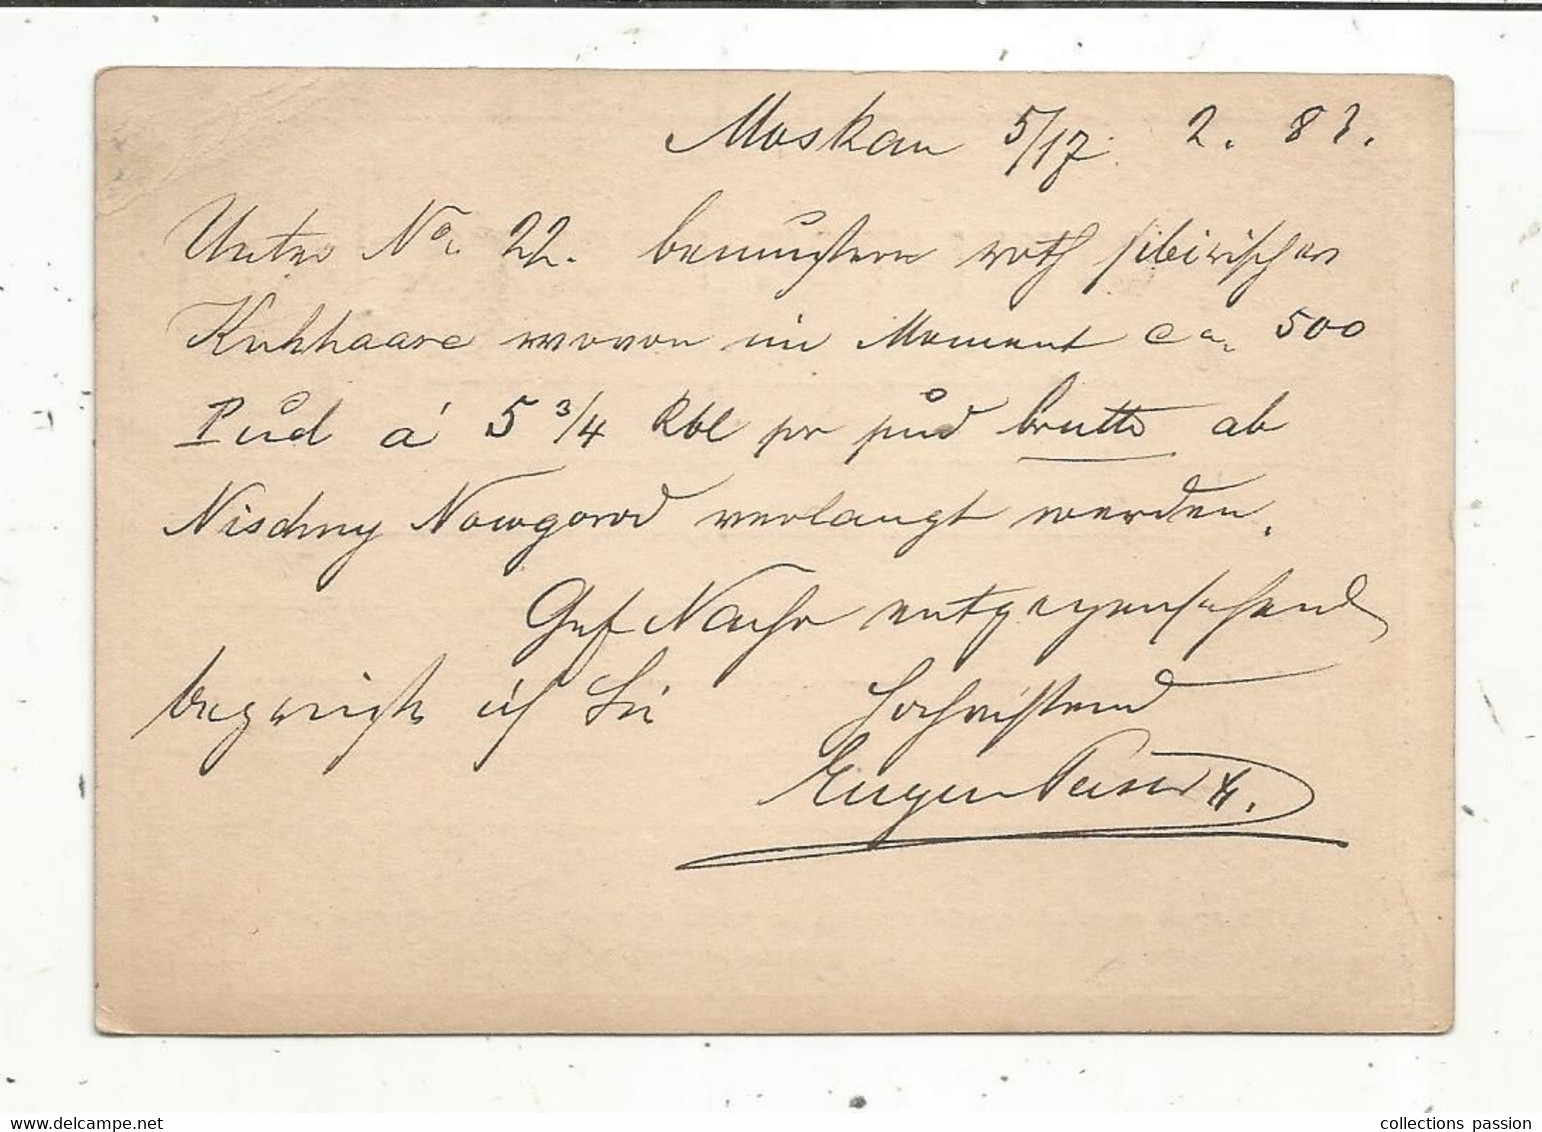 Moskau 5/17. 2. 83.
Unter No. 22. bemustern roth sibirischer
Kuhhaare wovon im Moment ca. 500
Pud á 5 3/4 Rbl pr pud brutto ab
Nischny Nowgorod verlangt werden.
Gef Nachr entgegensehend
begrüsst ich Sie Hochachtend
Eugen
collections passion